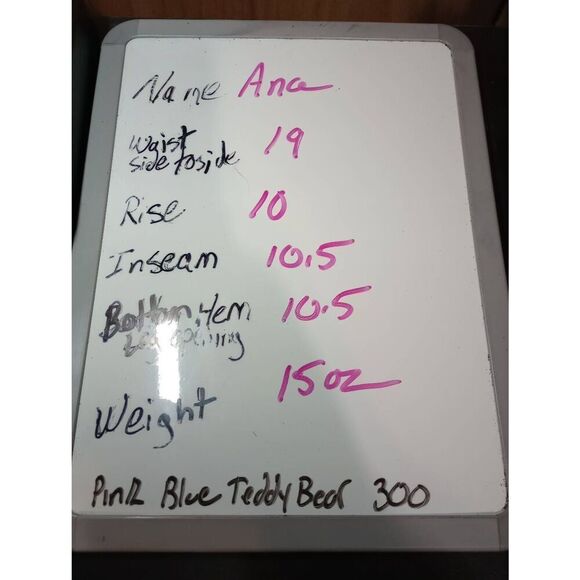 Name Ana
Waist 19
side to side
Rise 10
Inseam 10.5
Bottom Hem 10.5
Leg opening
Weight 15oz
Pink Blue Teddy Bear 300